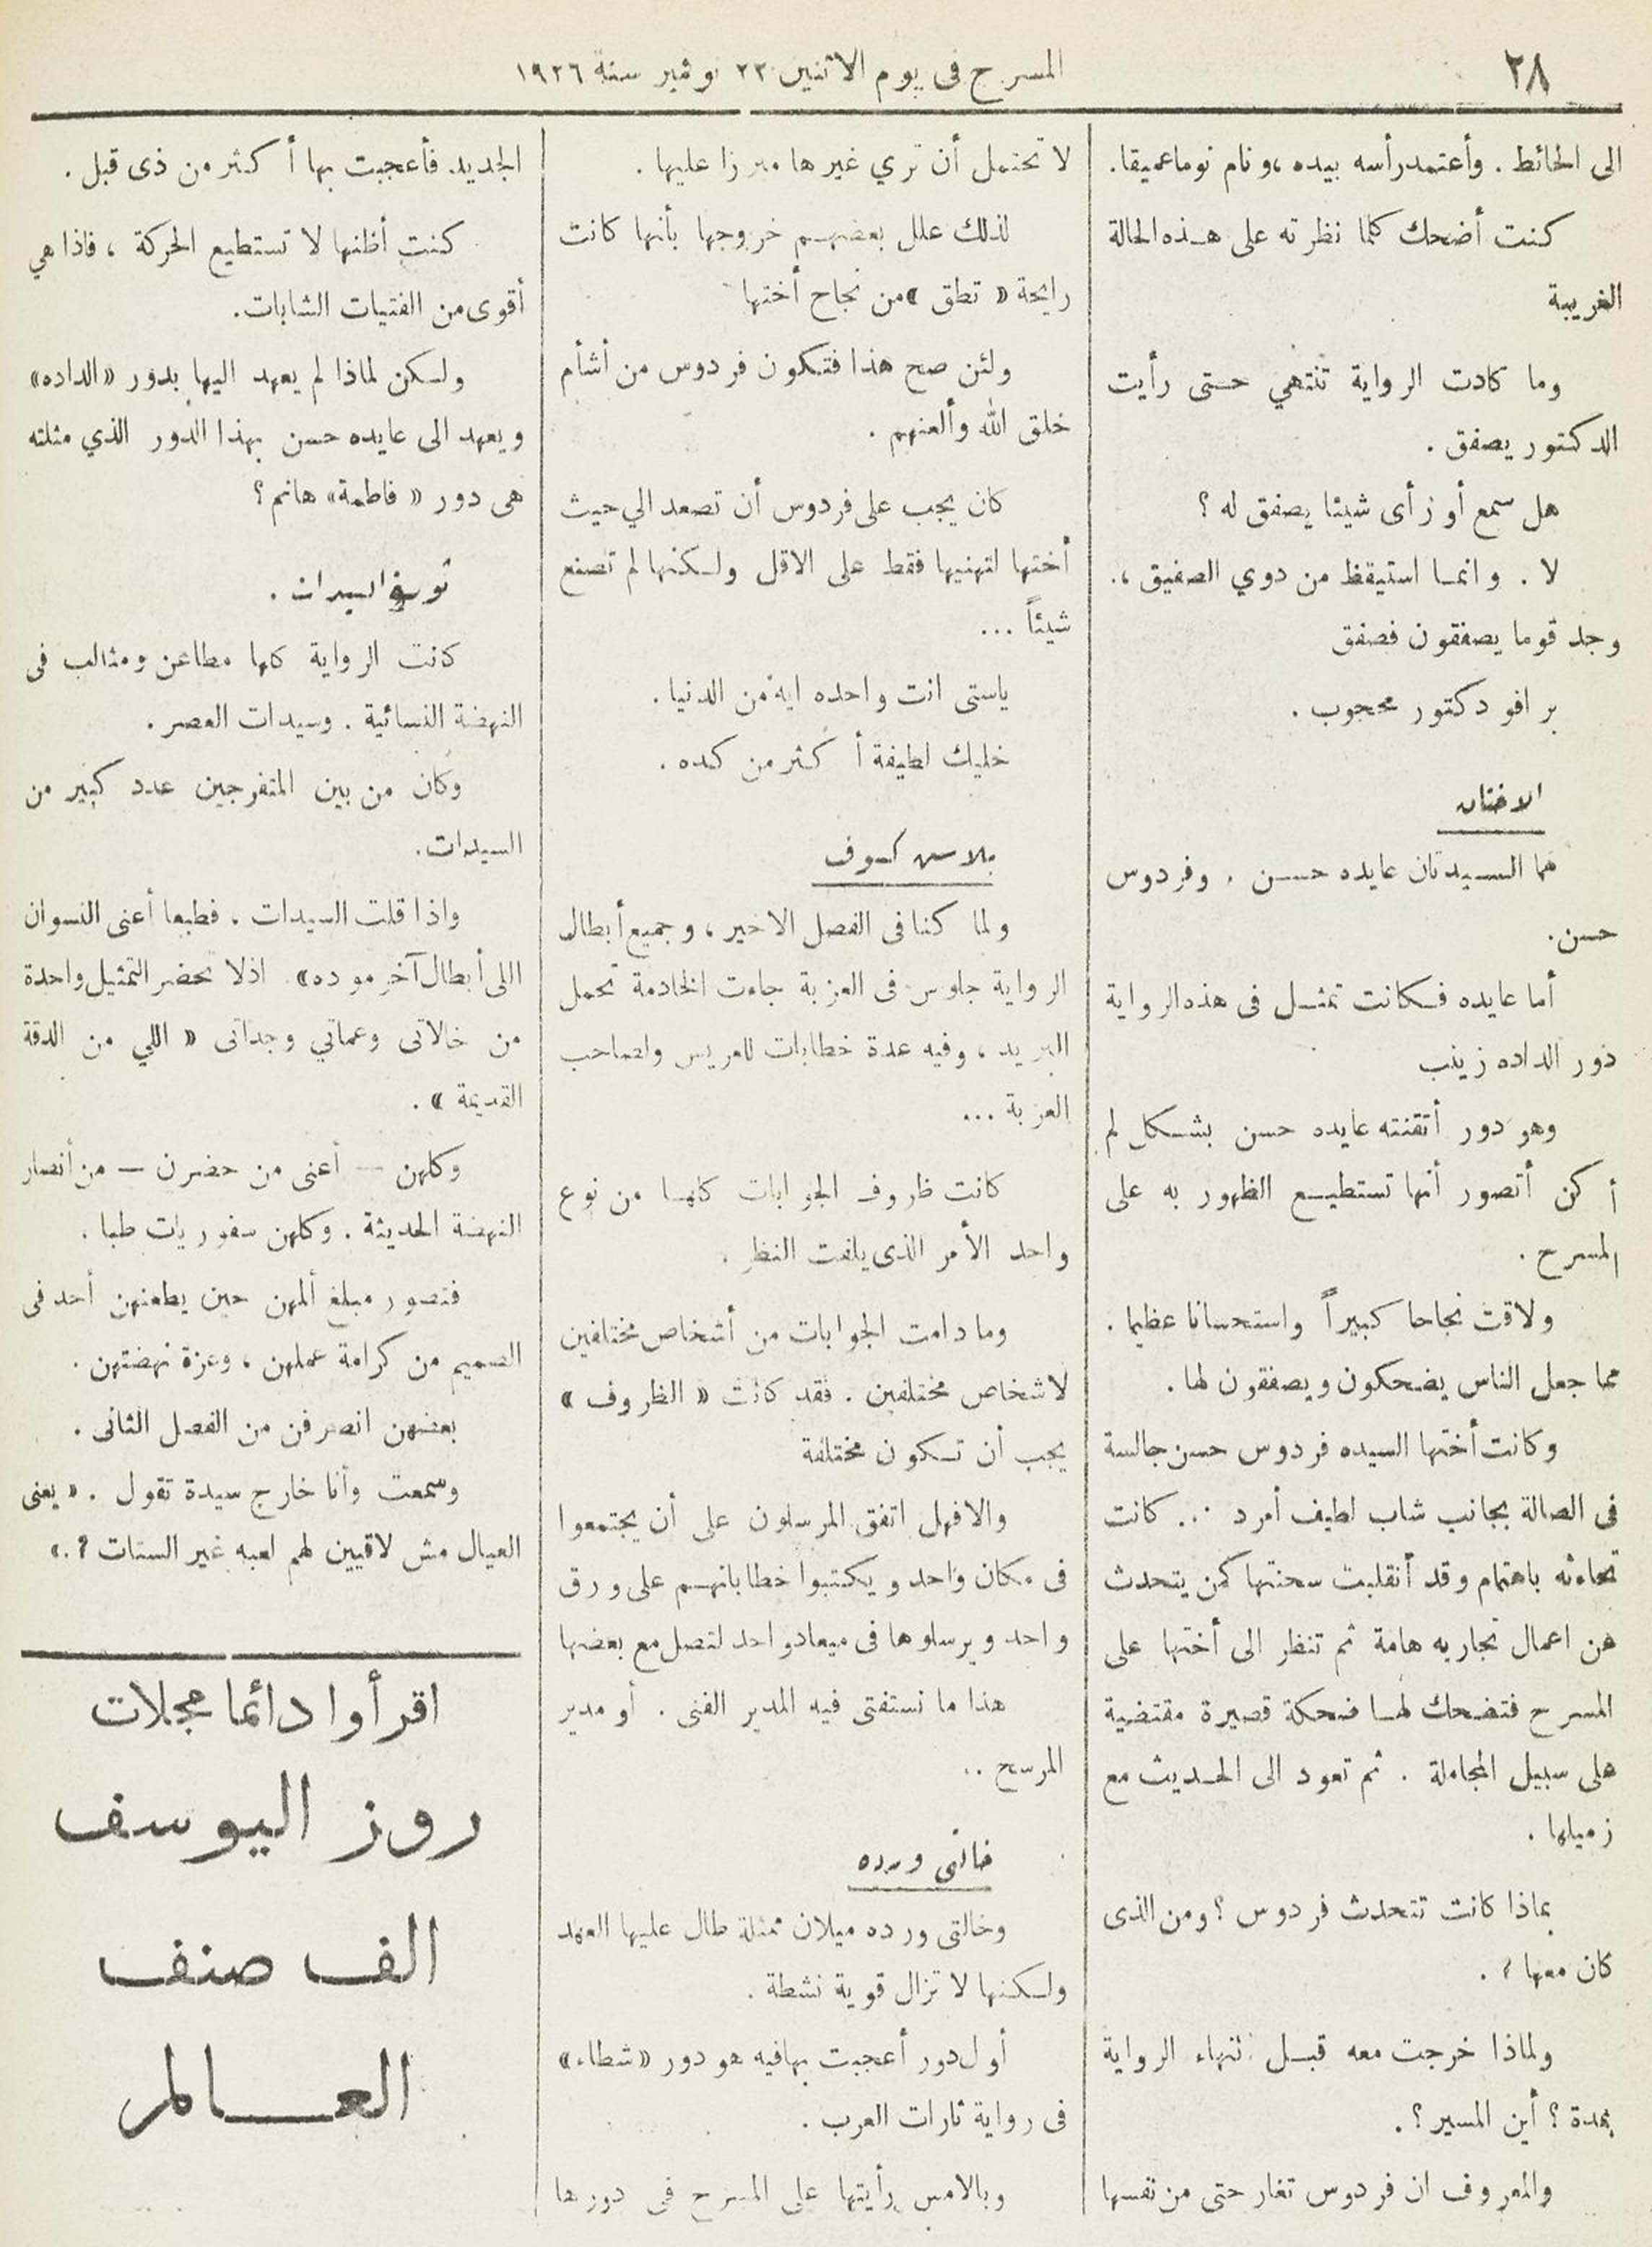 ٢٨
المسرح فى يوم الاثنين ٢٢ نوفمبر سنة ١٩٢٦
الى الحائط . وأعتمد رأسه بيده ،ونام نوما عميقا.
كنت أضحك كلما نظرته على هذه الحالة
الغريبة
وما كادت الرواية تنتهي حتى رأيت
الدكتور يصفق .
هل سمع أو رأى شيئا يصفق له ؟
لا . وانما استيقظ من دوي الصفيق ،.
وجد قوما يصفقون فصفق
برافو دكتور محجوب .
الاختان
هما السيدتان عايده حسن . وفردوس
حسن.
أما عايده فكانت تمثل فى هذه الرواية
دور الداده زينب
وهو دور أتقنته عايده حسن بشكل لم
أكن أتصور أنها تستطيع الظهور به على
المسرح .
ولاقت نجاحا كبيراً واستحسانا عظيما .
مما جعل الناس يضحكون ويصفقون لها .
وكانت أختها السيده فردوس حسن جالسة
فى الصالة بجانب شاب لطيف أمرد ... كانت
تحادثه باهتمام وقد أنقلبت سحنتها كمن يتحدث
عن اعمال تجاريه هامة ثم تنظر الى أختها على
المسرح فتضحك لها ضحكة قصيرة مقتضبة
على سبيل المجاملة . ثم تعود الى الحديث مع
زميلها .
بماذا كانت تتحدث فردوس ؟ ومن الذى
كان معها ؟ .
ولماذا خرجت معه قبل انتهاء الرواية
بمدة ؟ أين المسير ؟ .
والمعروف ان فردوس تغار حتى من نفسها
لا تحتمل أن تري غيرها مبرزا عليها .
لذلك علل بعضهم خروجها بأنها كانت
رايحة « تطق » من نجاح أختها
ولئن صح هذا فتكون فردوس من أشأم
خلق الله وألعنهم .
كان يجب على فردوس أن تصعد الي حيث
أختها لتهنيها فقط على الاقل ولكنها لم تصنع
شيئاً ...
ياستى انت واحده ايه من الدنيا .
خليك لطيفة أكثر من كده .
بلاس كسوف
ولما كنا فى الفصل الاخير ، وجميع أبطال
الرواية جلوس فى العزبة جاءت الخادمة تحمل
البريد ، وفيه عدة خطابات للعريس ولصاحب
العزبة ...
كانت ظروف الجوابات كلها من نوع
واحد الأمر الذى يلفت النظر .
وما دامت الجوابات من أشخاص مختلفين
لاشخاص مختلفين . فقد كانت « الظروف »
يجب أن تكون مختلفة
والا فهل اتفق المرسلون على أن يجتمعوا
فى مكان واحد ويكتبوا خطاباتهم على ورق
واحد ويرسلوها فى ميعاد واحد لتصل مع بعضها
هذا ما نستفتى فيه المدير الفنى . أو مدير
المرسح ..
خالتى ورده
وخالتى ورده ميلان ممثلة طال عليها العهد
ولكنها لا تزال قوية نشطة .
أول دور أعجبت بها فيه هو دور « شطاء »
فى رواية ثارات العرب .
وبالامس رأيتها على المسرح فى دورها
الجديد. فأعجبت بها أكثر من ذى قبل .
كنت أظنها لا تستطيع الحركة ، فاذا هي
أقوى من الفتيات الشابات.
ولكن لماذا لم يعهد اليها بدور «الداده»
ويعهد الى عايده حسن بهذا الدور الذي مثلته
هى دور « فاطمة» هانم ؟
السيدات .
كانت الرواية كلها مطاعن ومثالب فى
النهضة النسائية . وسيدات العصر .
وكان من بين المتفرجين عدد كبير من
السيدات.
واذا قلت السيدات . فطبعا أعنى النسوان
اللى أبطال آخر موده» . اذ لا تحضر التمثيل واحدة
من خالاتى وعماتي وجداتى « اللي من الدقة
القديمة » .
وكلهن — أعنى من حضرن — من أنصار
النهضة الحديثة . وكلهن سفوريات طبا .
فتصور مبلغ ألمهن حين يطعنهن أحد فى
الصميم من كرامة عملهن ، وعزة نهضتهن .
بعضهن انصرفن من الفصل الثانى .
وسمعت وأنا خارج سيدة تقول . « يعنى
العيال مش لاقيين لهم لعبه غير الستات ؟ .»
اقرأوا دائما مجلات
روز اليوسف
الف صنف
العالم